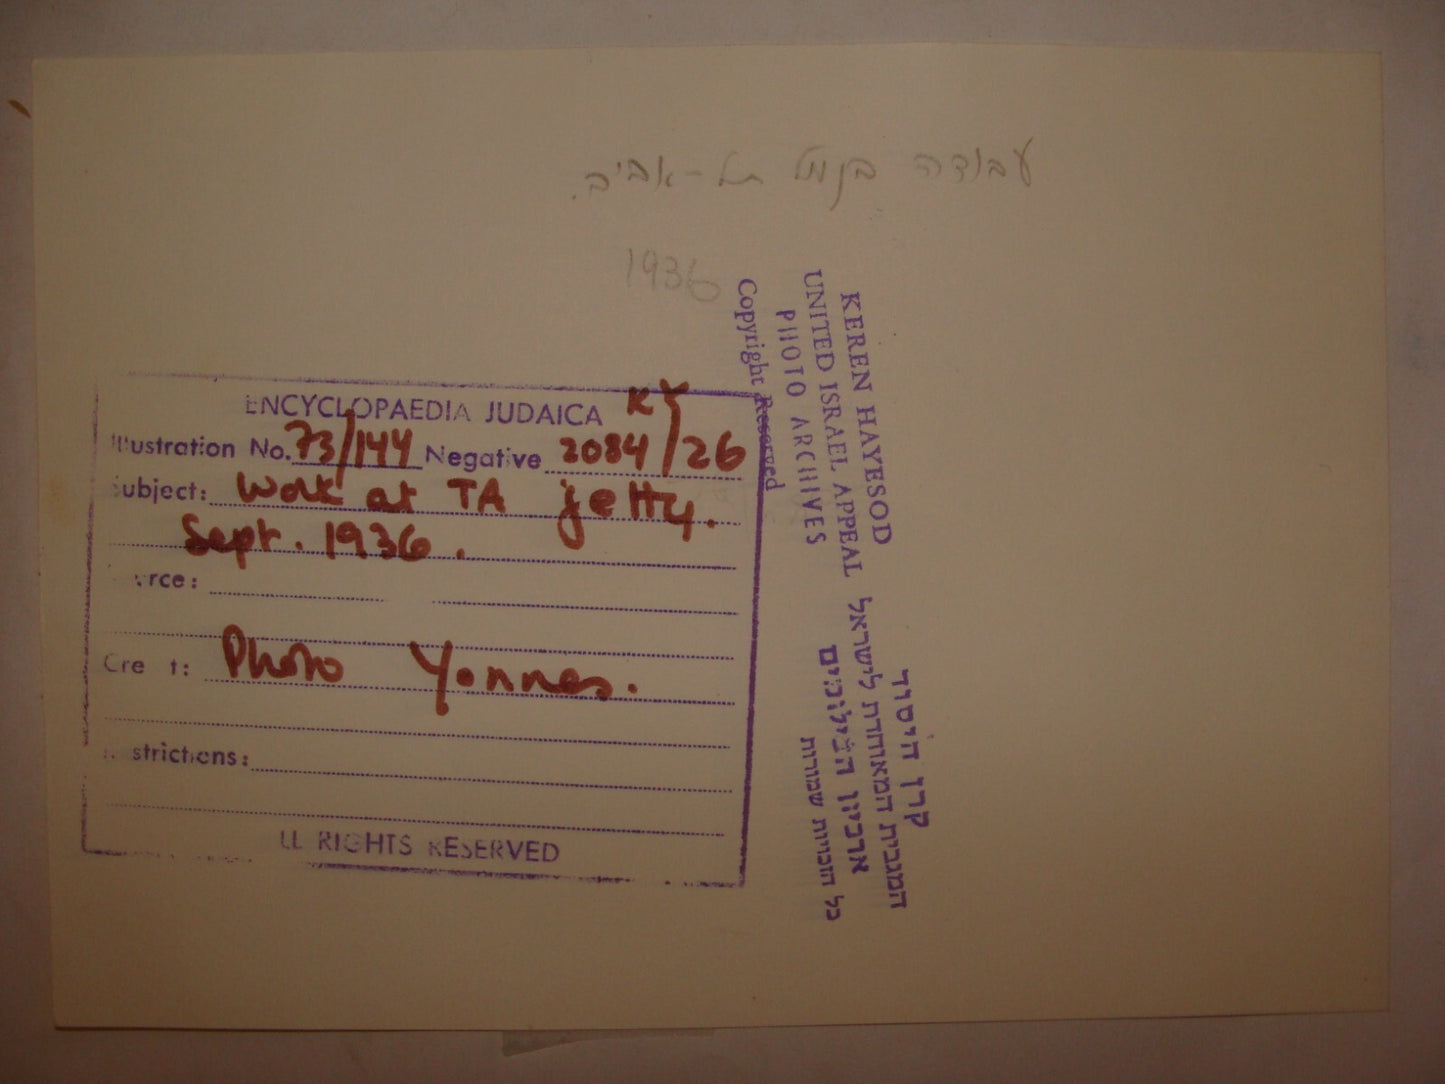 עבודה בנמל תל-אביב.
1936
ENCYCLOPAEDIA JUDAICA KY
Illustration No. 73/144 Negative 2084/26
Subject: Work at TA jetty.
Sept. 1936.
rce:
Cre t: Photo Yonnes.
strictions:
LL RIGHTS RESERVED
KEREN HAYESOD
UNITED ISRAEL APPEAL
PHOTO ARCHIVES
Copyright Reserved
קרן היסוד
המגבית המאוחדת לישראל
ארכיון הצילומים
כל הזכויות שמורות